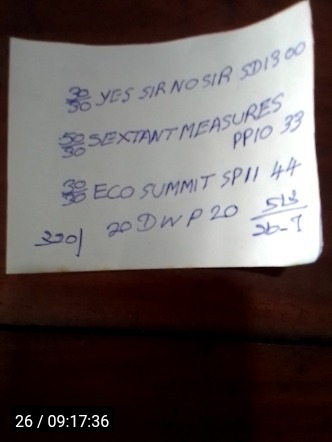 30/30 YES SIR NO SIR SD13 00
50/30 SEXTANT MEASURES
PP10 33
30/30 ECO SUMMIT SP11 44
20 DWP 20 513/26-7
26 / 09:17:36